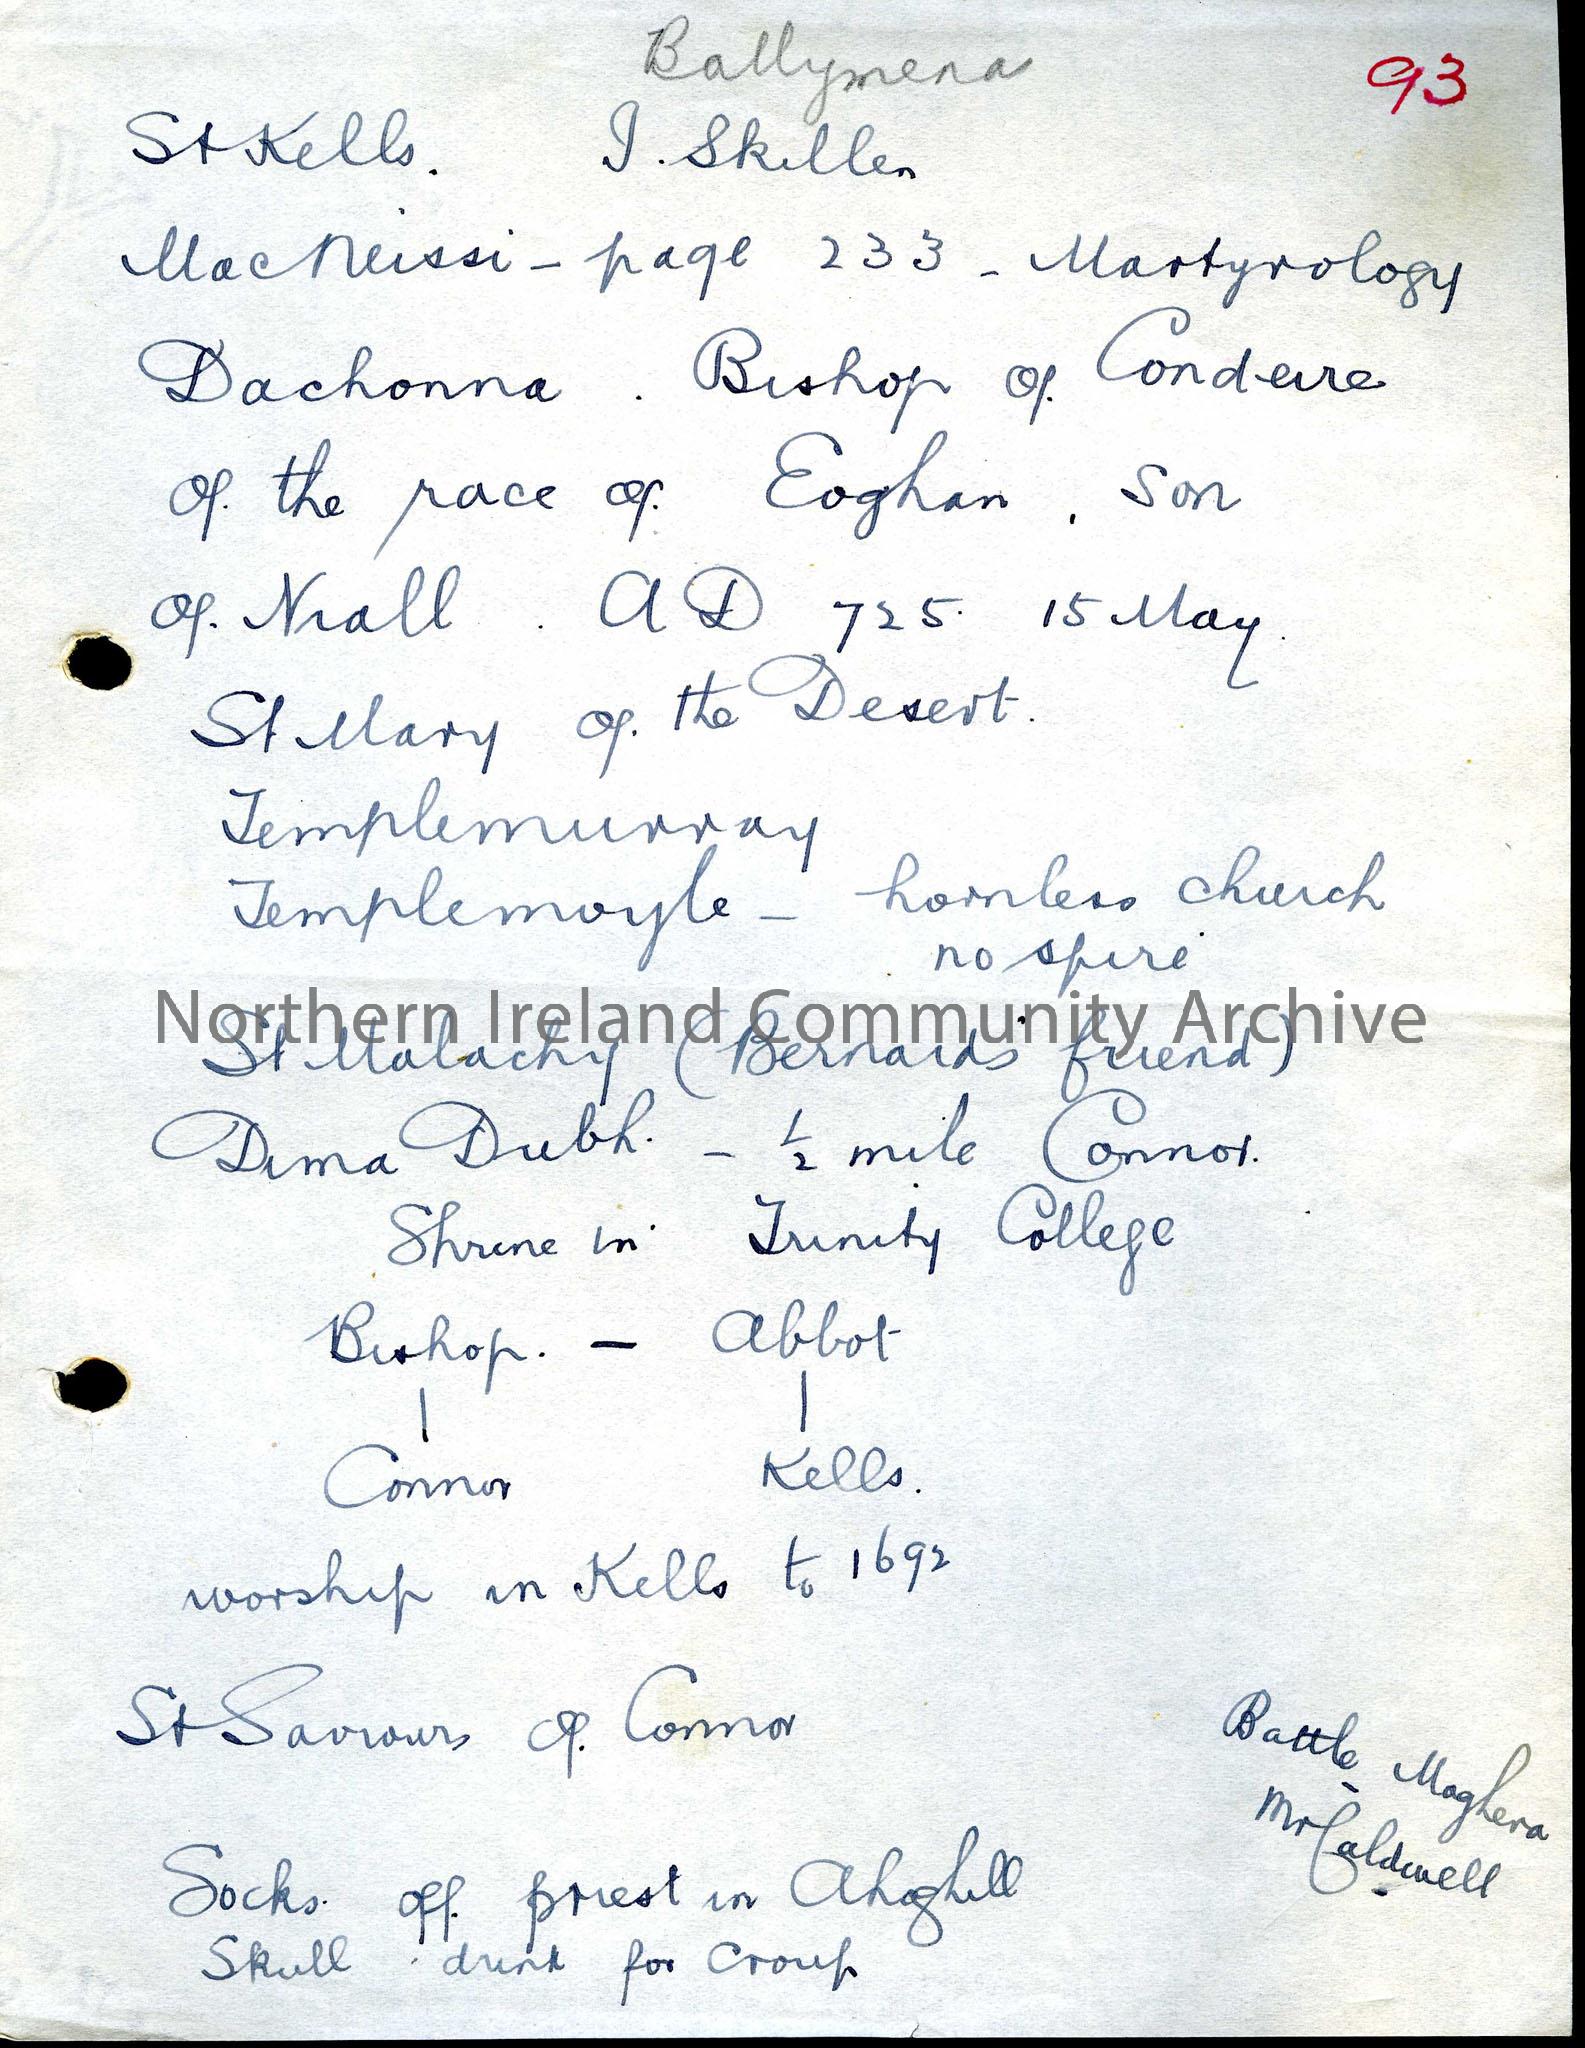 Ballymena
93
St Kells. J. Skillen
MacNeissi - page 233 - Martyrology
Dachonna. Bishop of Condeire
of the race of Eoghan, son
of Niall. AD 725. 15 May.
St Mary of the Desert.
Templemurray
Templemoyle - hornless church
no spire
Northern Ireland Community Archive
St Malachy (Bernards friend)
Dima Dubh. - 1/2 mile Connor.
Shrine in Trinity College
Bishop. - Abbot
Connor Kells.
worship in Kells to 1692
St Saviours of Connor
Battle Maghera
Mr Caldwell
Socks off priest in Ahoghill
Skull drink for croup